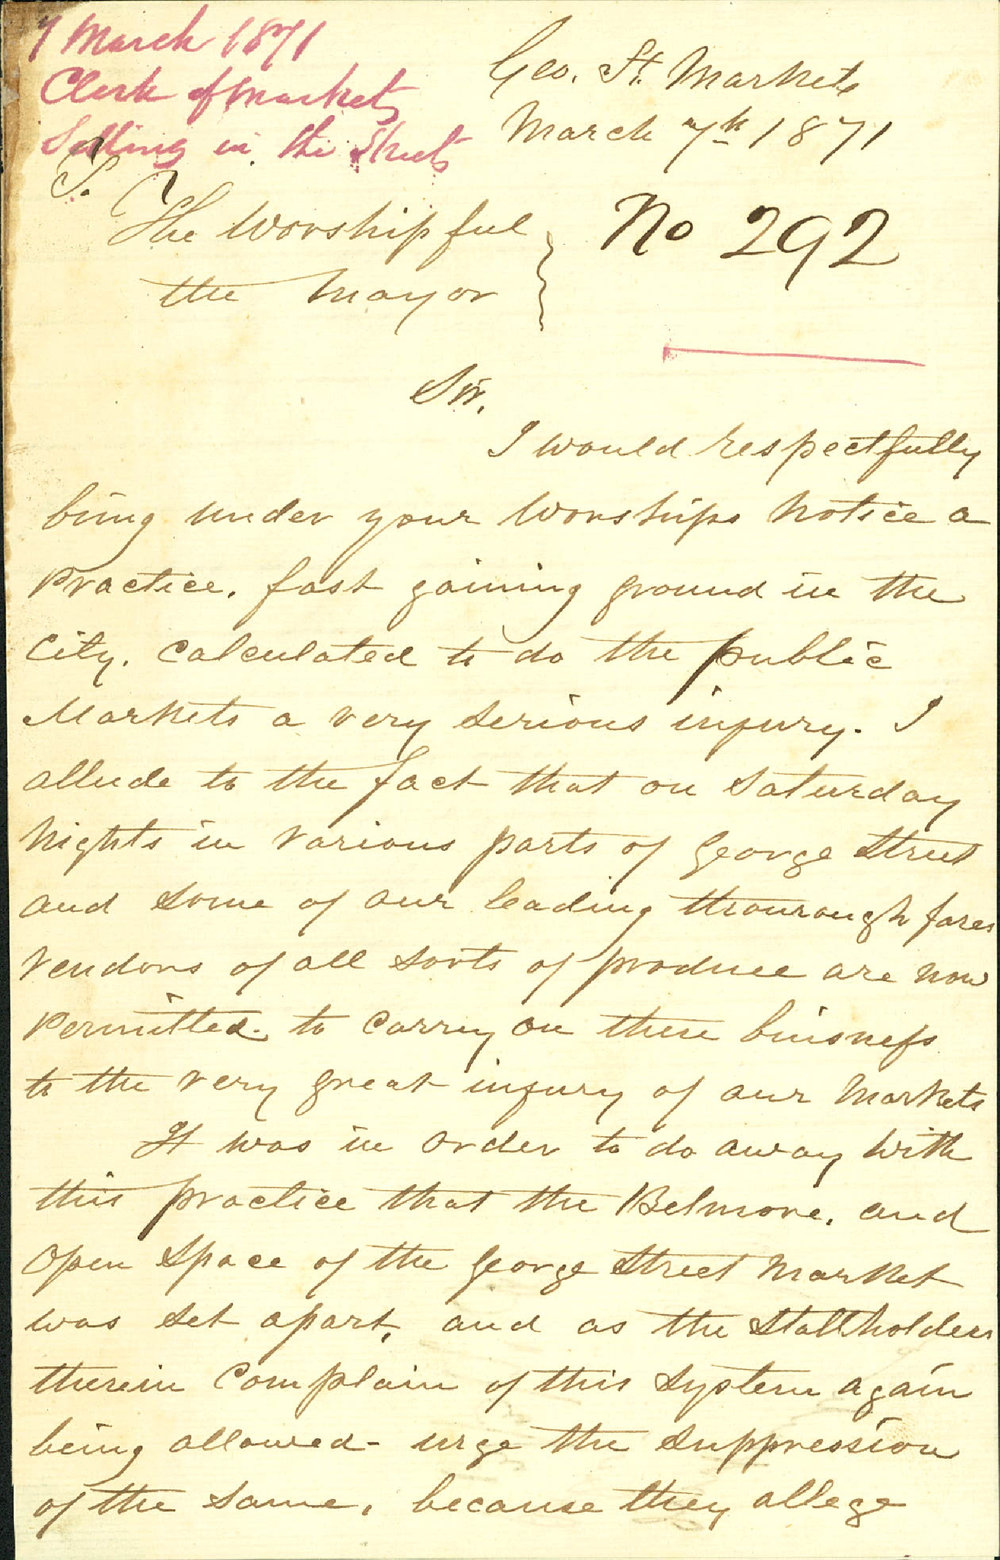 7 March 1871
Clerk of Markets
Selling in the Streets
Geo. St. Markets
March 7th 1871
To
The Worshipful
the Mayor
No 292
Sir,
I would respectfully
bring under your Worships Notice a
Practice. fast gaining ground in the
City. Calculated to do the public
Markets a very serious injury. I
allude to the fact that on Saturday
Nights in various parts of George Street
and some of our leading thourough fares
Vendors of all sorts of produce are now
Permitted to Carry on there buisness
to the very great injury of our Markets
It was in order to do away with
this practice that the Belmore. and
Open Space of the George Street Market
was set apart, and as the Stallholders
therein Complain of this System again
being allowed - urge the Suppression
of the Same, because they allege